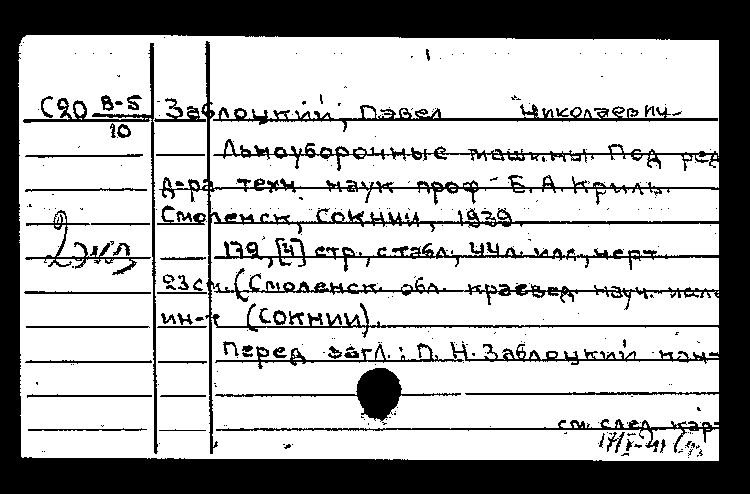 С20 В-5
10
Заблоцкий, Павел Николаевич
Льноуборочные машины. Под ред
д-ра техн наук проф Б.А. Криль.
Смоленск, СОКНИИ, 1939.
2 экз
179, [4] стр., с табл., 44 л. илл., черт
23 см. (Смоленск. обл. краевед науч. иссле
ин-т (СОКНИИ).
Перед загл.: П. Н. Заблоцкий кан-
см. след. кар-